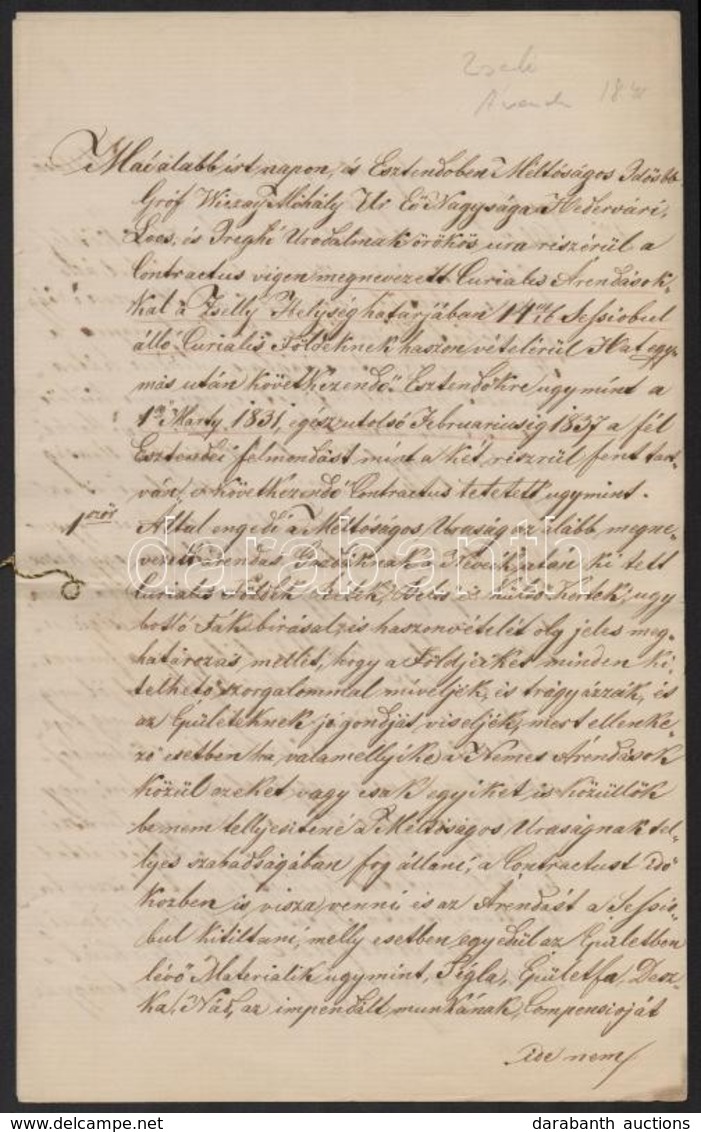 Zseli
Árenda 18
Mái alább írt napon, és Esztendőben Méltóságos Idősbb
Gróf Wiczay Mihály Ur Eő Nagysága Hedervári,
Loos, és Ireghi Uradalmak örökös ura részérül a
Contractus vigen megnevezett Curialis Árendások-
kal a Zselly Helység határjában 14 Sessiobul
álló Curialis Földeknek haszon vételérül Hat egy-
más után következendő Esztendőkre ugymint a
1ső Marty 1831, egész utolsó Februariusig 1837 a fél
Esztendei felmondást mint a két részrül fent tart-
ván, e következendő Contractus tetetett ugymint.
1ször Által engedi a Méltóságos Uraság az alább megne-
vezett Árendás Uraiknak a Nevek után ki tett
Curialis
botló Fák birásal, és haszonvételét oly jeles meg-
határozás mellet, hogy a Földjeiket minden ki
telhető szorgalommal míveljék, is trágyázzák, és
az Épületeknek jó gondját viseljék, mert ellenke-
ző esetben ha valamellyike a Nemes Árendások
közül ezeket vagy csak egyiket is közüllök
be nem tellyesítené a Méltóságos Uraságnak tel-
lyes szabadságában fog állani, a Contractust idő
közben is visza venni és az Árendást a Sessio-
bul kitiltani, melly esetben egyedül az Épületben
lévő Materialik ugymint, Tégla, Épületfa, Desz-
ka, Nád, az impendált munkának Compensioját
ide nem
darabanth
darabanth auctions